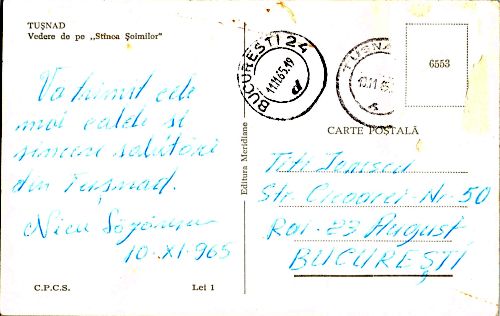 TUȘNAD
Vedere de pe „Stînca Șoimilor"
Va trimit cele
mai calde si
sincere salutări
din Tușnad.
Nicu
10-XI-965
C.P.C.S. Lei 1
Editura Meridiane
BUCURESTI 24
11.11.65.19
d
TUSNAD
10.11.65
6553
CARTE POȘTALĂ
Titi Ionescu
Str. Cicoarei-Nr-50
Rai-23 August
BUCUREȘTI